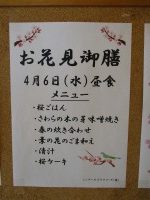 お花見御膳
4月6日(水)昼食
メニュー
・桜ごはん
・さわらの木の芽味噌焼き
・春の炊き合わせ
・菜の花のごま和え
・清汁
・桜ケーキ